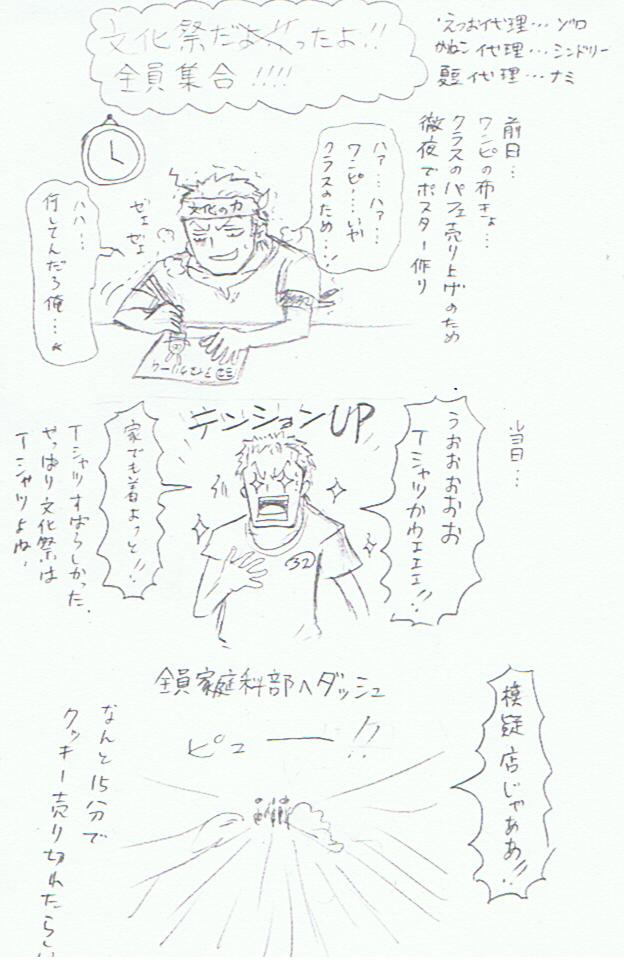 文化祭だよったよ!!
全員集合!!!!
・えつお代理…ゾロ
かねこ代理…シンドリー
夏豆代理…ナミ
前日…
ワンピの布きょ…
クラスのパフェ売り上げのため
徹夜でポスター作り
ハァ…ハァ…
ワンピ…いや
クラスのため…!
文化の力
ゼェ
ゼェ
ハハ…
何してんだろ俺…
当日…
うおおおおお
Tシャツかウェェェ!!
テンションUP
家でも着よっと!!
32
Tシャツすばらしかった。
やっぱり文化祭は
Tシャツよね。
模疑店じゃああ!!
全員家庭科部へダッシュ
ピューー!!
なんと15分で
クッキー売り切れたらしい